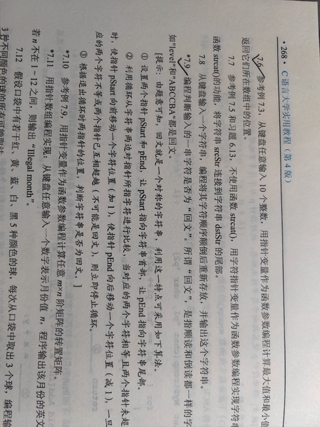 ·268· C语言大学实用教程(第4版)
7.6 参考例7.3,从键盘任意输入10个整数,用指针变量作为函数参数编程计算最大值和最小值
返回它们所在数组中的位置。
7.7 参考例7.5和习题6.13,不使用函数strcat(),用字符指针变量作为函数参数编程实现字符串
函数strcat()的功能,将字符串srcStr连接到字符串dstStr的尾部。
7.8 从键盘输入一个字符串,编程将其字符顺序颠倒后重新存放,并输出这个字符串。
*7.9 编程判断输入的一串字符是否为“回文”。所谓“回文”,是指顺读和倒读都一样的字
如"level"和"ABCCBA"都是回文。
[提示:由题意可知,回文就是一个对称的字符串,利用这一特点可采用如下算法。
① 设置两个指针pStart和pEnd,让pStart指向字符串首部,让pEnd指向字符串尾部。
② 利用循环从字符串两边对指针所指字符进行比较,当对应的两个字符相等且两个指针未超
时,使指针pStart向前移动一个字符位置(加1),使指针pEnd向后移动一个字符位置(减1),一旦
应的两个字符不等或两个指针已互相超越(不可能是回文),则立即停止循环。
③ 根据退出循环时两指针的位置,判断字符串是否为回文。]
*7.10 参考例7.9,用指针变量作为函数参数编程计算任意m×n阶矩阵的转置矩阵。
*7.11 用指针数组编程实现:从键盘任意输入一个数字表示月份值n,程序输出该月份的英文
若n不在1~12之间,则输出“Illegal month”。
7.12 假设口袋中有若干红、黄、蓝、白、黑5种颜色的球,每次从口袋中取出3个球,编程输
3种不同颜色的球的